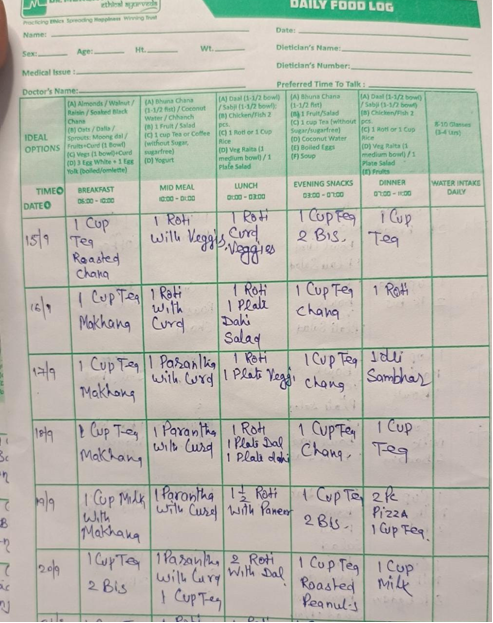 ethical ayurveda
Practicing Ethics Spreading Happiness Winning Trust
DAILY FOOD LOG
Name:
Date:
Sex: Age: Ht. Wt.
Dietician's Name:
Medical Issue :
Dietician's Number:
Doctor's Name:
Preferred Time To Talk :
IDEAL
OPTIONS
(A) Almonds / Walnut /
Raisin / Soaked Black
Chana
(B) Oats / Dalia /
Sprouts Moong dal /
Fruits+Curd (1 Bowl)
(C) Veg (1 bowl)+Curd
(D) 1 Egg White + 1 Egg
Yolk (boiled/omlette)
(A) Bhuna Chana
(1-1/2 fist) / Coconut
Water / Chhanch
(B) 1 Fruit / Salad
(C) 1 cup Tea or Coffee
(without Sugar,
sugarfree)
(D) Yogurt
(A) Daal (1-1/2 bowl)
/ Sabji (1-1/2 bowl)
(B) Chicken/Fish 2
pcs.
(C) 1 Roti or 1 Cup
Rice
(D) Veg Raita (1
medium bowl) / 1
Plate Salad
(A) Bhuna Chana
(1-1/2 fist)
(B) 1 Fruit/Salad
(C) 1 cup Tea (without
Sugar/sugarfree)
(D) Coconut Water
(E) Boiled Eggs
(F) Soup
(A) Daal (1-1/2 bowl)
/ Sabji (1-1/2 bowl)
(B) Chicken/Fish 2
pcs.
(C) 1 Roti or 1 Cup
Rice
(D) Veg Raita (1
medium bowl) / 1
Plate Salad
(E) Fruits
8-10 Glasses
(3-4 Ltrs)
TIME
DATE
BREAKFAST
MID MEAL
10:00 - 01:00
LUNCH
01:00 - 03:00
EVENING SNACKS
03:00 - 07:00
DINNER
07:00 - 11:00
WATER INTAKE
DAILY
15/9
1 Cup
Tea
Roasted
Chana
1 Roti
with Veggis,
1 Roti
Curd
Veggies
1 Cup Tea
2 Bis.
1 Cup
Tea
16/9
1 Cup Tea
Makhana
1 Roti
with
Curd
1 Roti
1 Plate
Dahi
Salad
1 Cup Tea
chana
1 Roti
17/9
1 Cup Tea
Makhana
1 Parantha
with Curd
1 Roti
1 Plate Veggi
1 Cup Tea
chana
Idli
Sambhar
18/9
1 Cup Tea
Makhana
1 Parantha
with Curd
1 Roti
1 Plate Dal
1 Plate dahi
1 Cup Tea
Chana.
1 Cup
Tea
19/9
1 Cup Milk
with
Makhana
1 Parantha
with Curd
1 1/2 Roti
with Paneer
1 Cup Tea
2 Bis.
2 Pc
Pizza
1 Cup Tea.
20/9
1 Cup Tea
2 Bis
1 Parantha
with Curd
1 Cup Tea
2 Roti
With Dal
1 Cup Tea
Roasted
Peanuts
1 Cup
Milk